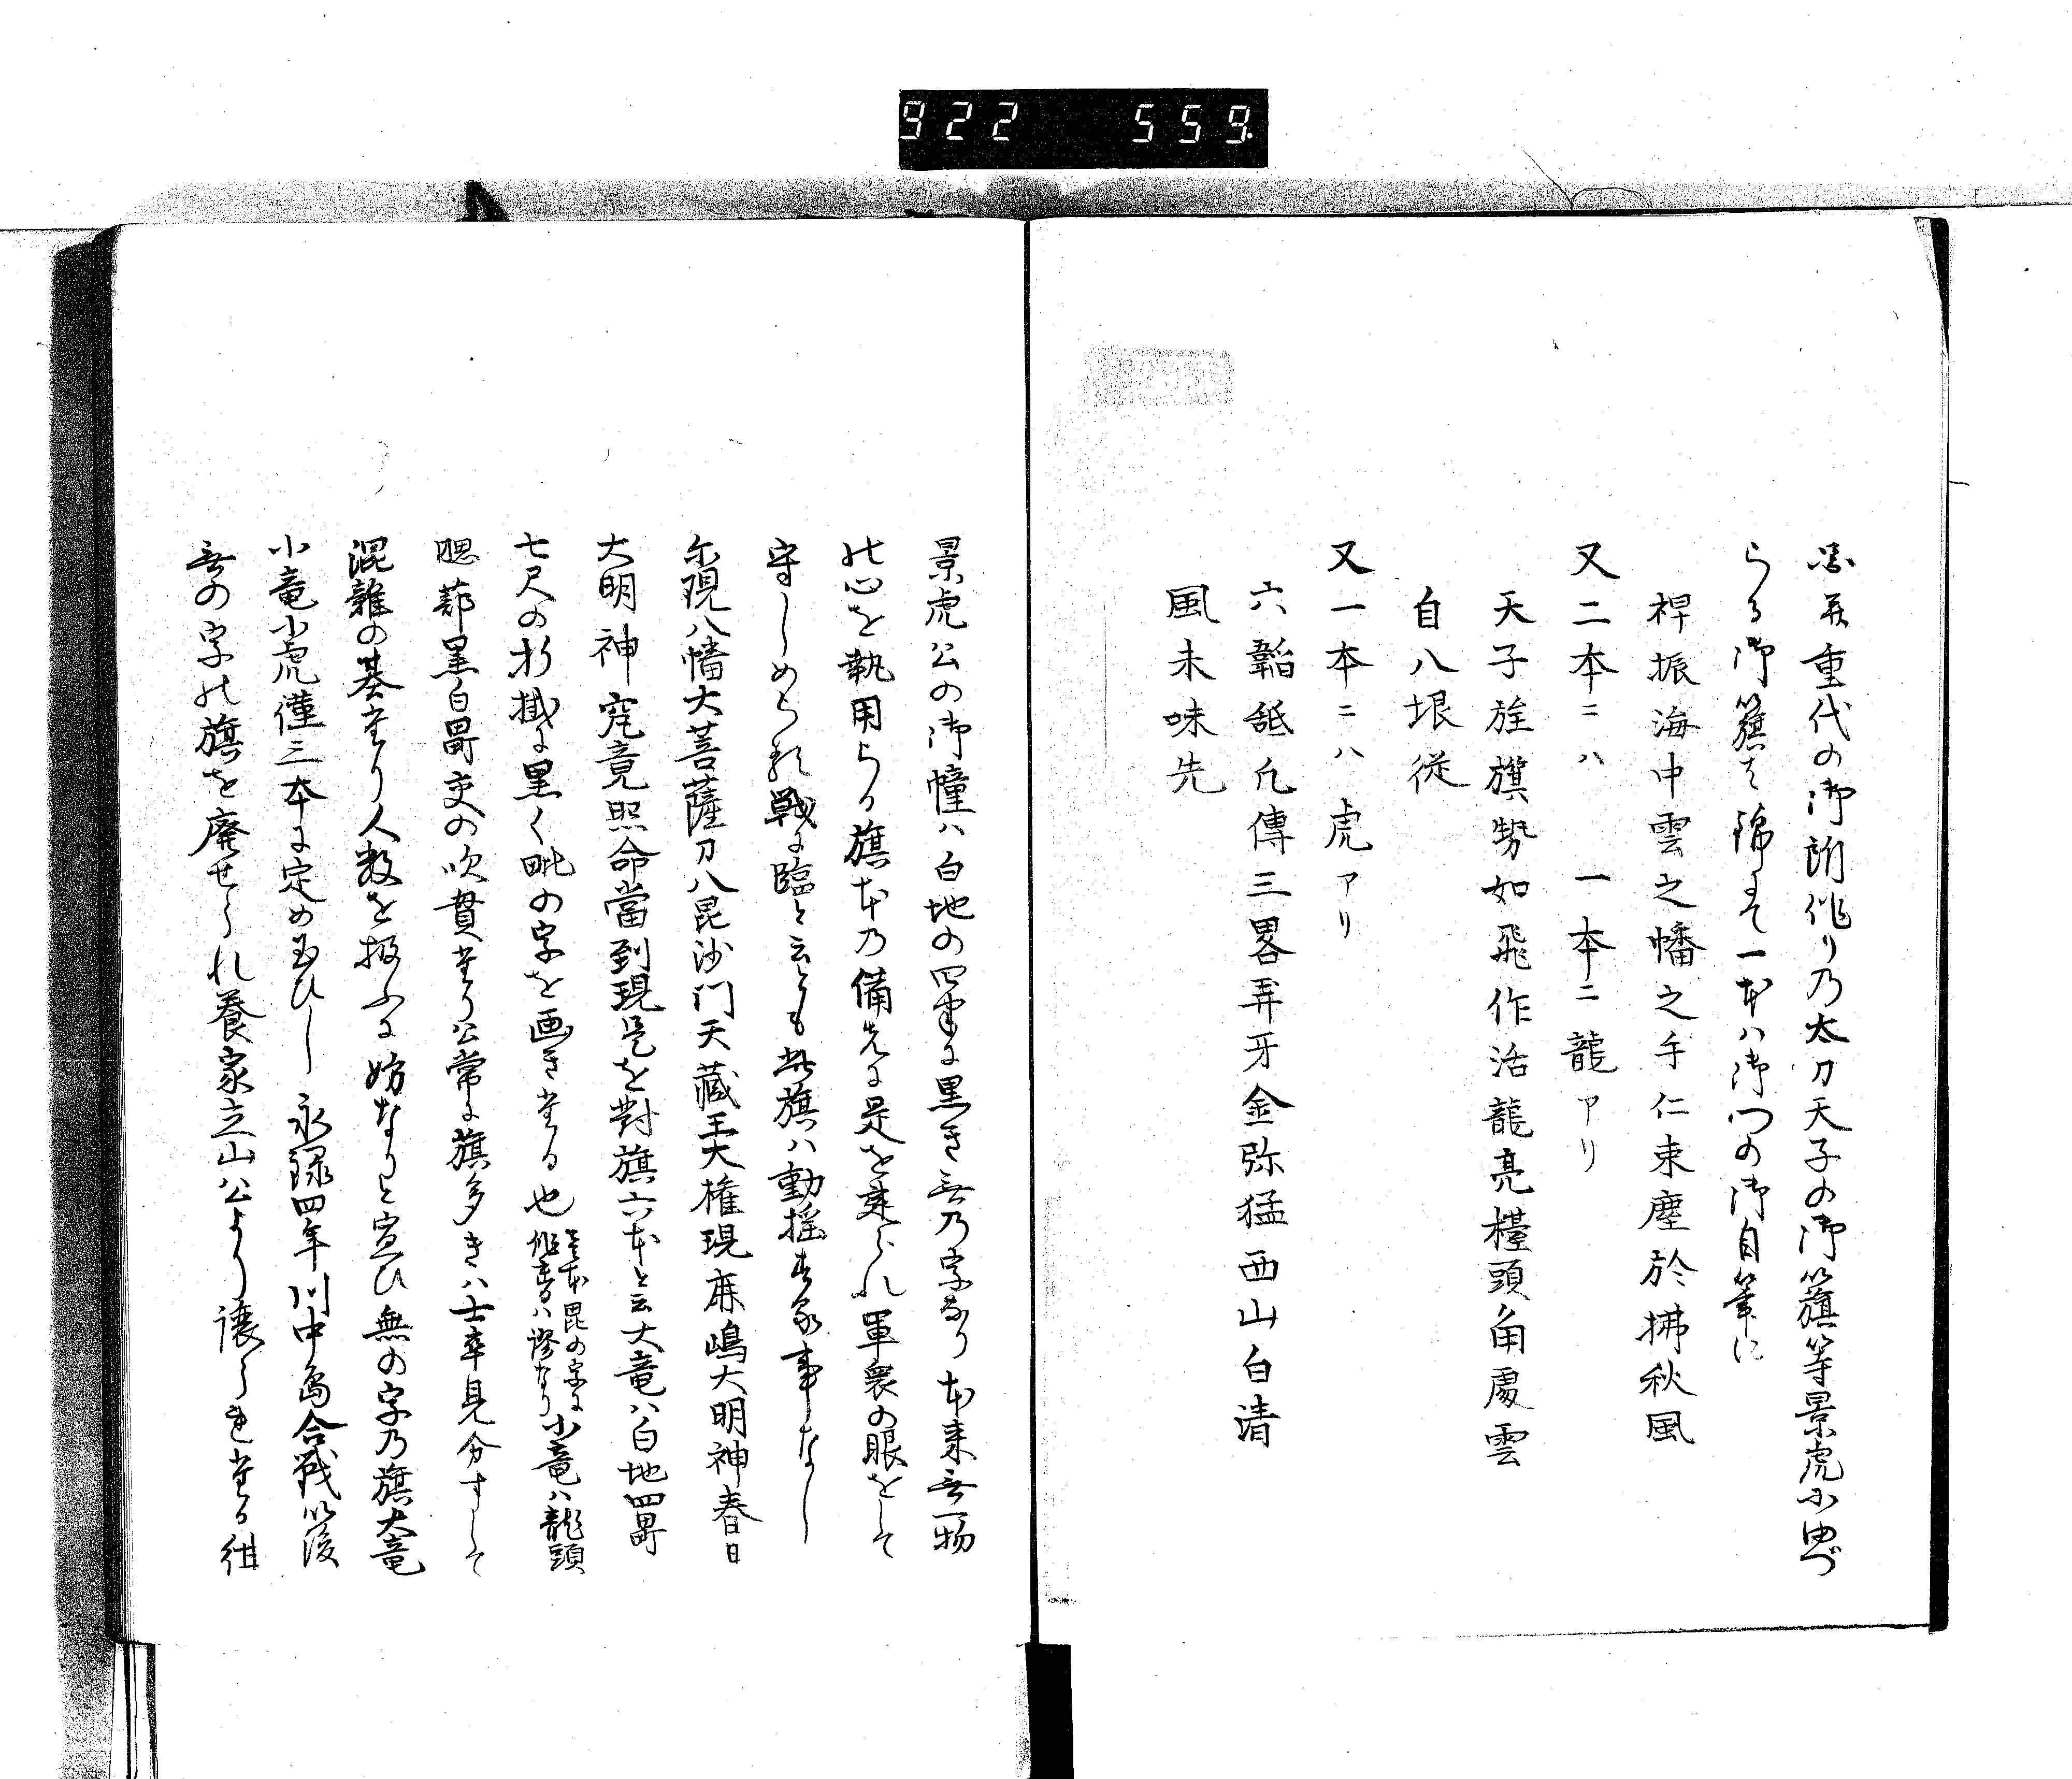 922 559.
重代の御所作り乃太刀天子の御籏等景虎ニゆづ
らる御籏そ錦にて一本ハ御門の御自筆に
捍振海中雲之幡之手仁束塵於拂秋風
又二本ニハ 一本ニ龍アリ
天子旌旗勢如飛作活龍亮檯頭角處雲
自八垠従
又一本ニハ 虎アリ
六韜舐凢傳三畧弄牙金弥猛西山白清
風未味先
景虎公の御幢ハ白地の四半に黒き無乃字なり本来無一物
の心を執用らる旗本乃備先に是を建られ軍衆の眼をして
守しめられ戦に臨と云とも此旗ハ動揺する事なし
尓現八幡大菩薩刀八毘沙門天藏王大権現麻嶋大明神春日
大明神究竟照命當到現是を對旗六本と云大竜ハ白地四畧
七尺の折掛に黒く毗の字を画きたる也 異本毘の字に作書るハ謬なり 小竜ハ龍頭
黒白畧交の吹貫なり公常に旗多きハ士卒見分すして
混雜の基なり人数を扱ふに妨なりと宣ひ無の字乃旗大竜
小竜小虎僅三本に定め玉ひし永禄四年川中島合戦以後
無の字の旗を廃せられ養家立山公より讓られたる紺